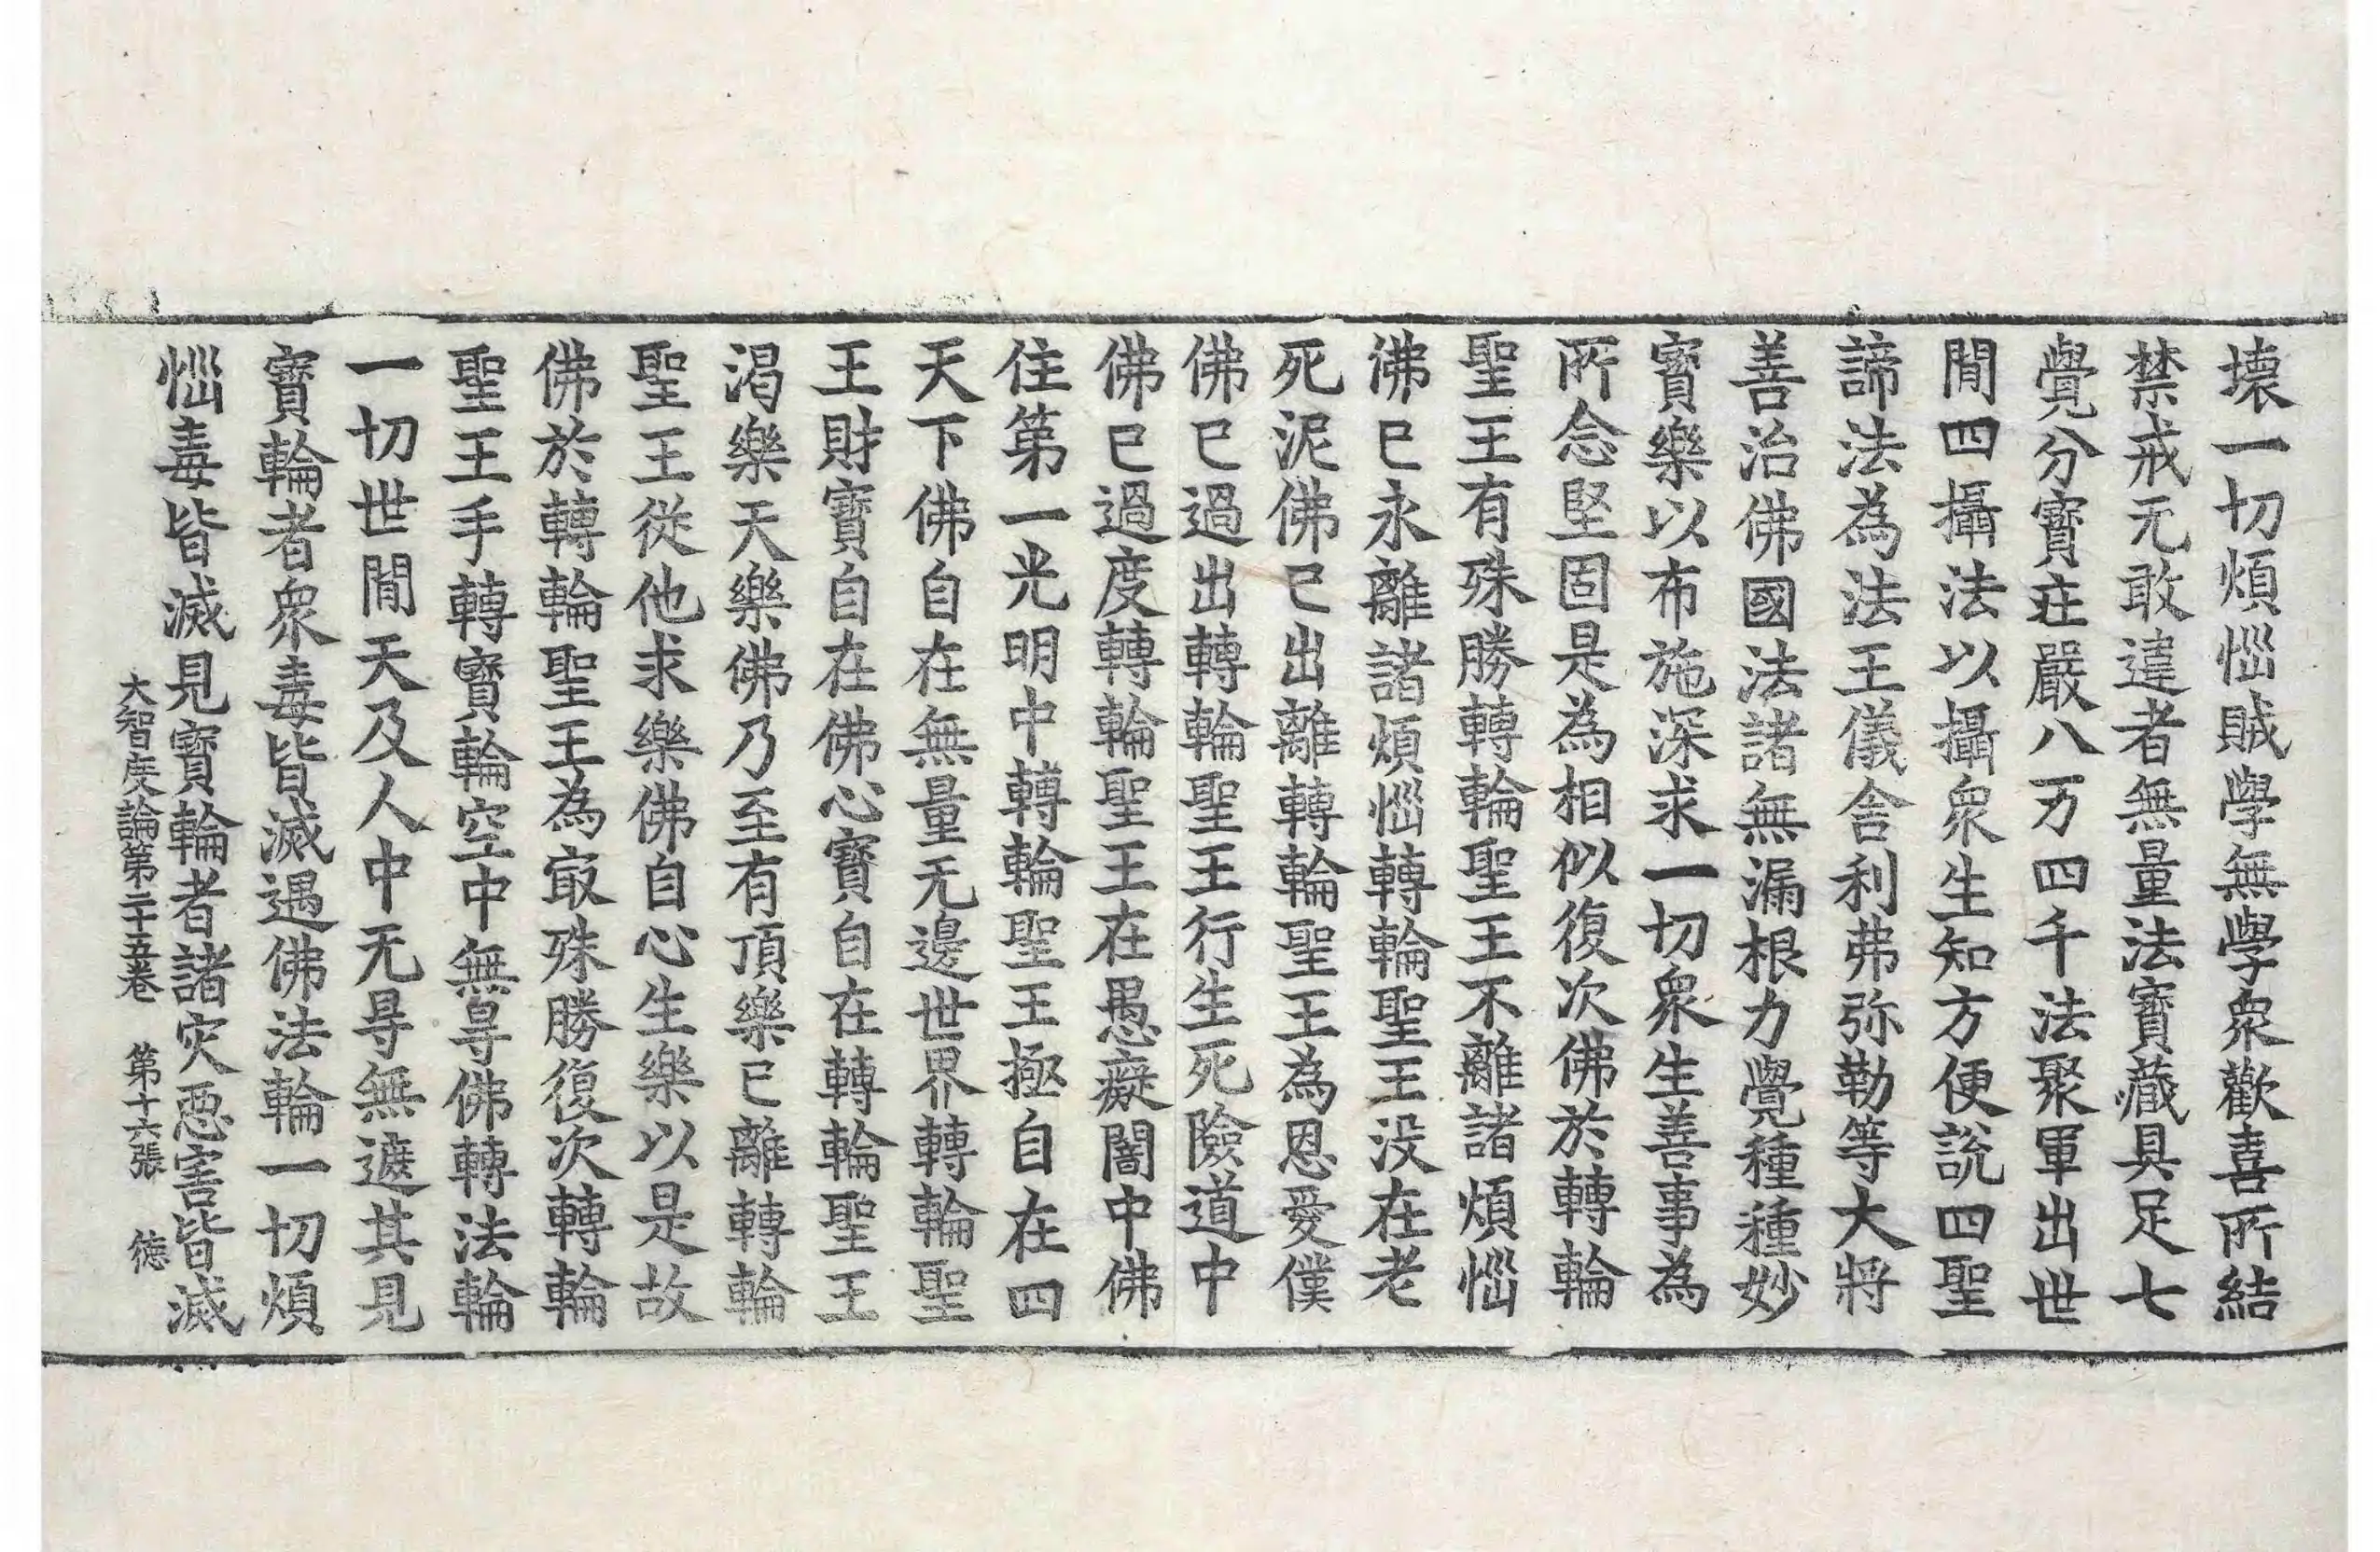 壞一切煩惱賊學無學衆歡喜所結
禁戒无敢違者無量法寶藏具足七
覺分寶莊嚴八万四千法聚軍出世
閒四攝法以攝衆生知方便說四聖
諦法為法王儀舍利弗弥勒等大將
善治佛國法諸無漏根力覺種種妙
寶樂以布施深求一切衆生善事為
所念堅固是為相似復次佛於轉輪
聖王有殊勝轉輪聖王不離諸煩惱
佛已永離諸煩惱轉輪聖王没在老
死泥佛已出離轉輪聖王為恩愛僕
佛已過出轉輪聖王行生死險道中
佛已過度轉輪聖王在愚癡闇中佛
住第一光明中轉輪聖王極自在四
天下佛自在無量无邊世界轉輪聖
王財寶自在佛心寶自在轉輪聖王
渴樂天樂佛乃至有頂樂已離轉輪
聖王從他求樂佛自心生樂以是故
佛於轉輪聖王為㝡殊勝復次轉輪
聖王手轉寶輪空中無㝵佛轉法輪
一切世閒天及人中无㝵無遮其見
寶輪者衆毒皆滅遇佛法輪一切煩
惱毒皆滅見寶輪者諸灾惡害皆滅
大智度論第二十五卷 第十六張 德